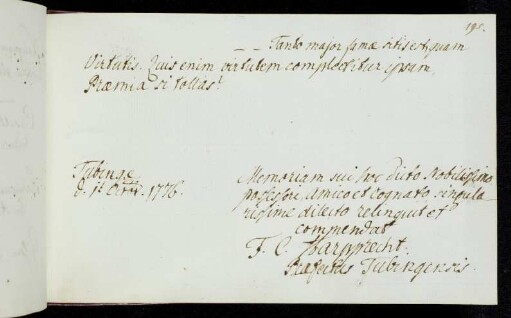 191.
_ _ Tanto major famæ sitis est, quam
Virtutis. Quis enim virtutem complectitur ipsam,
Præmia si tollas!
Tubingæ
d. 1776.
Memoriam sui hoc dicto Nobilissimo
possessori, Amico et Cognato, singula-
rissime dilecto relinquit et
commendat
F. C. Harpprecht.
Præfectus Tubingensis.